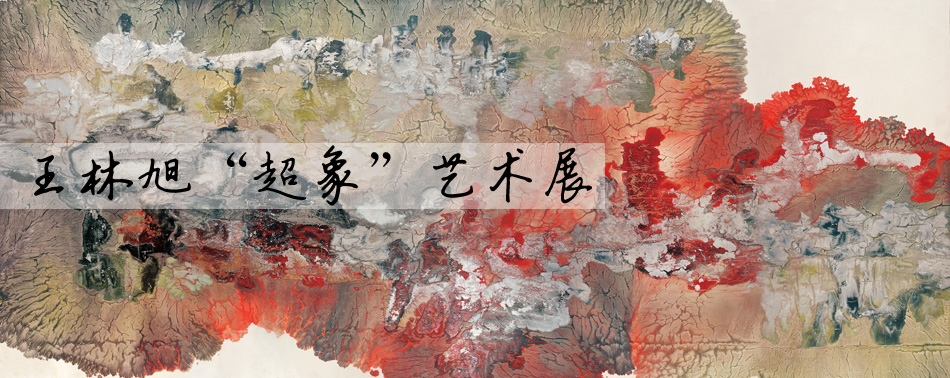 王林旭“超象”艺术展